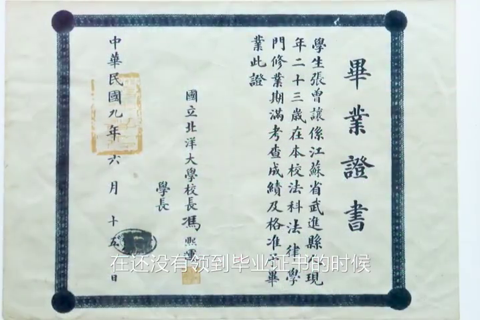 畢業證書
學生張曾讓係江蘇省武進縣人現
年二十三歲在本校法科法律學
門修業期滿考查成績及格准予畢
業此證
國立北洋大學校長馮熙運
學長
中華民國九年六月十五日
在还没有领到毕业证书的时候